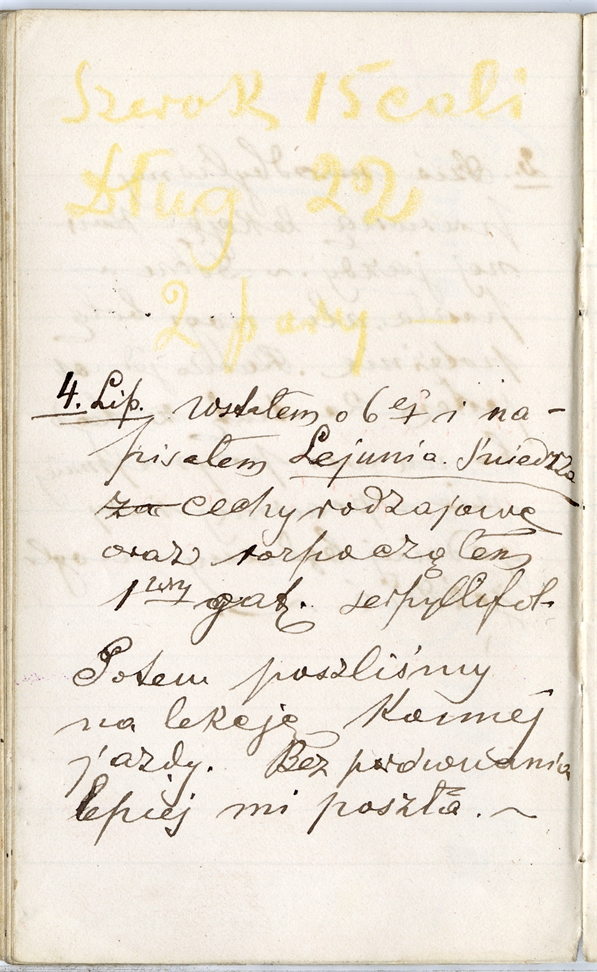 Szerok 15 cali
Dług 22
2 pary —
4. Lip. Wstałem o 6ej i na-
pisałem Lejunia. Śniedzza
za cechy rodzajowe
oraz rozpocząłem
1wszy gat. serpyllifol.
Potem poszliśmy
na lekcję konnej
jazdy. Bez porównania
lepiej mi poszła. ~